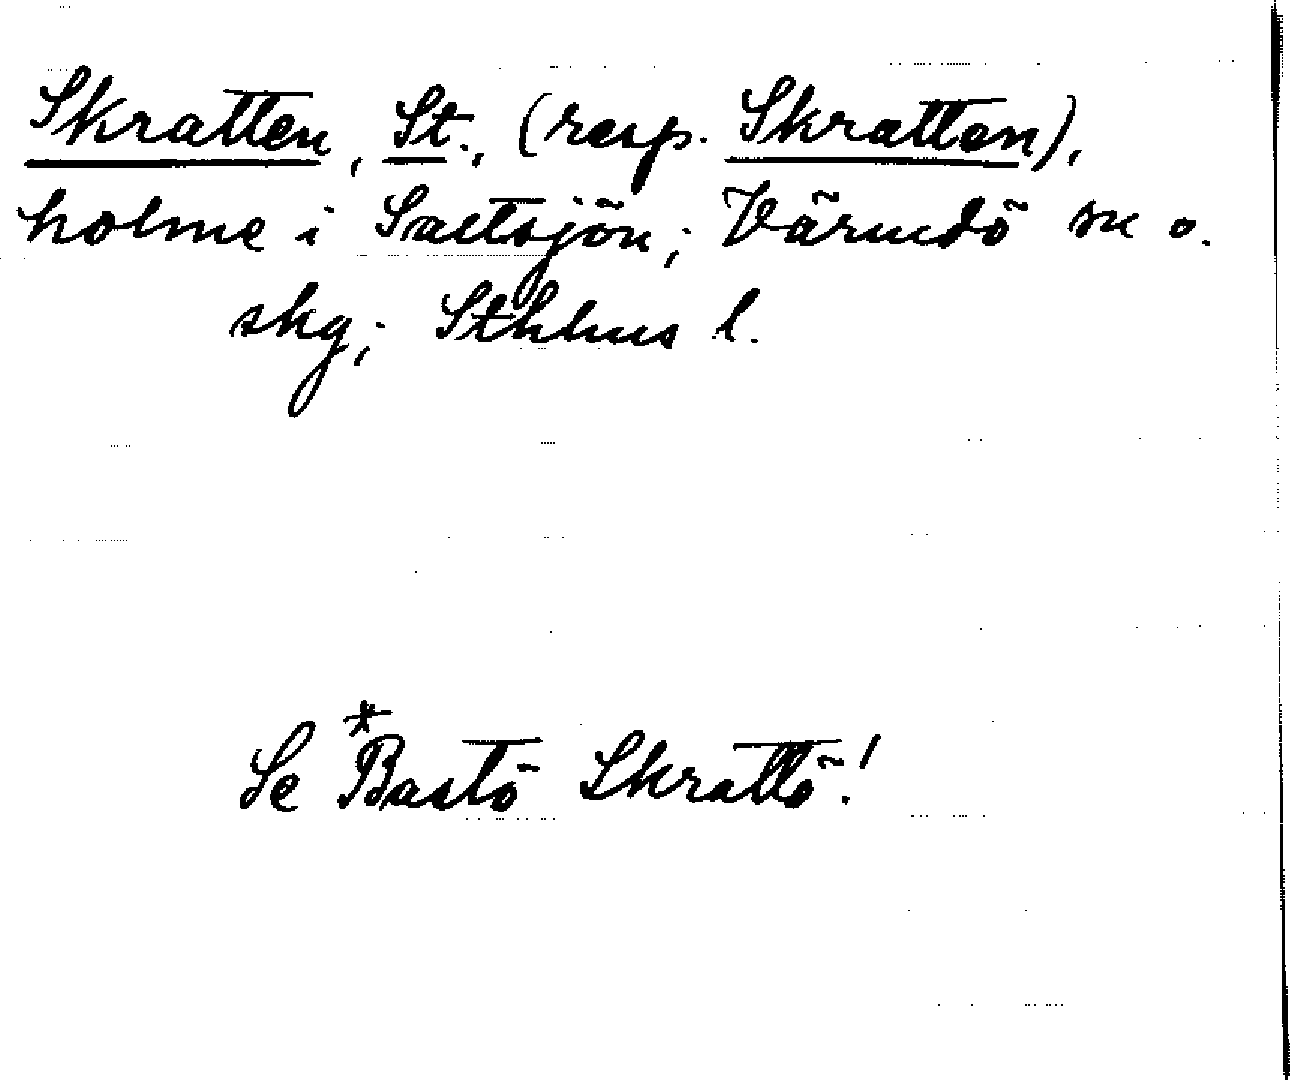 Skratten, St., (resp. Skratten),
holme i Saltsjön; Värmdö sn o.
skg; Sthlms l.
Se *Bastö Skrattö!